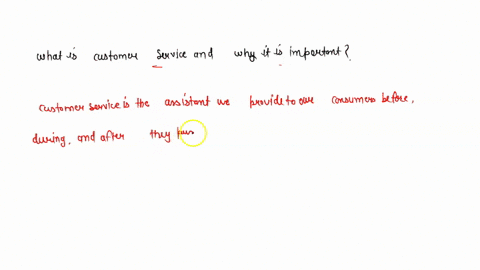 what is customer service and why it is important?
customer service is the assistant we provide to our consumers before,
during, and after they pur